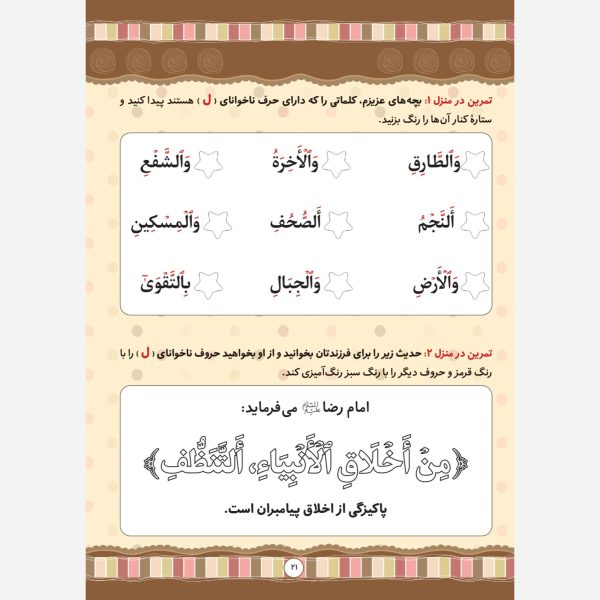 تمرین در منزل ۱: بچه‌های عزیزم، کلماتی را که دارای حرف ناخوانای ( ل ) هستند پیدا کنید و
ستارهٔ کنار آن‌ها را رنگ بزنید.
وَالطَّارِقِ وَالْأَخِرَةُ وَالشَّفْعِ
أَلنَّجْمُ أَلصُّحُفِ وَالْمِسْكِينِ
وَالْأَرْضِ وَالْجِبَالِ بِالتَّقْوَىٰ
تمرین در منزل ۲: حدیث زیر را برای فرزندتان بخوانید و از او بخواهید حروف ناخوانای ( ل ) را با
رنگ قرمز و حروف دیگر را با رنگ سبز رنگ‌آمیزی کند.
امام رضا علیه‌السلام می‌فرماید:
﴿مِنْ أَخْلَاقِ الْأَنْبِيَاءِ، أَلتَّنَظُّفِ﴾
پاکیزگی از اخلاق پیامبران است.
۲۱